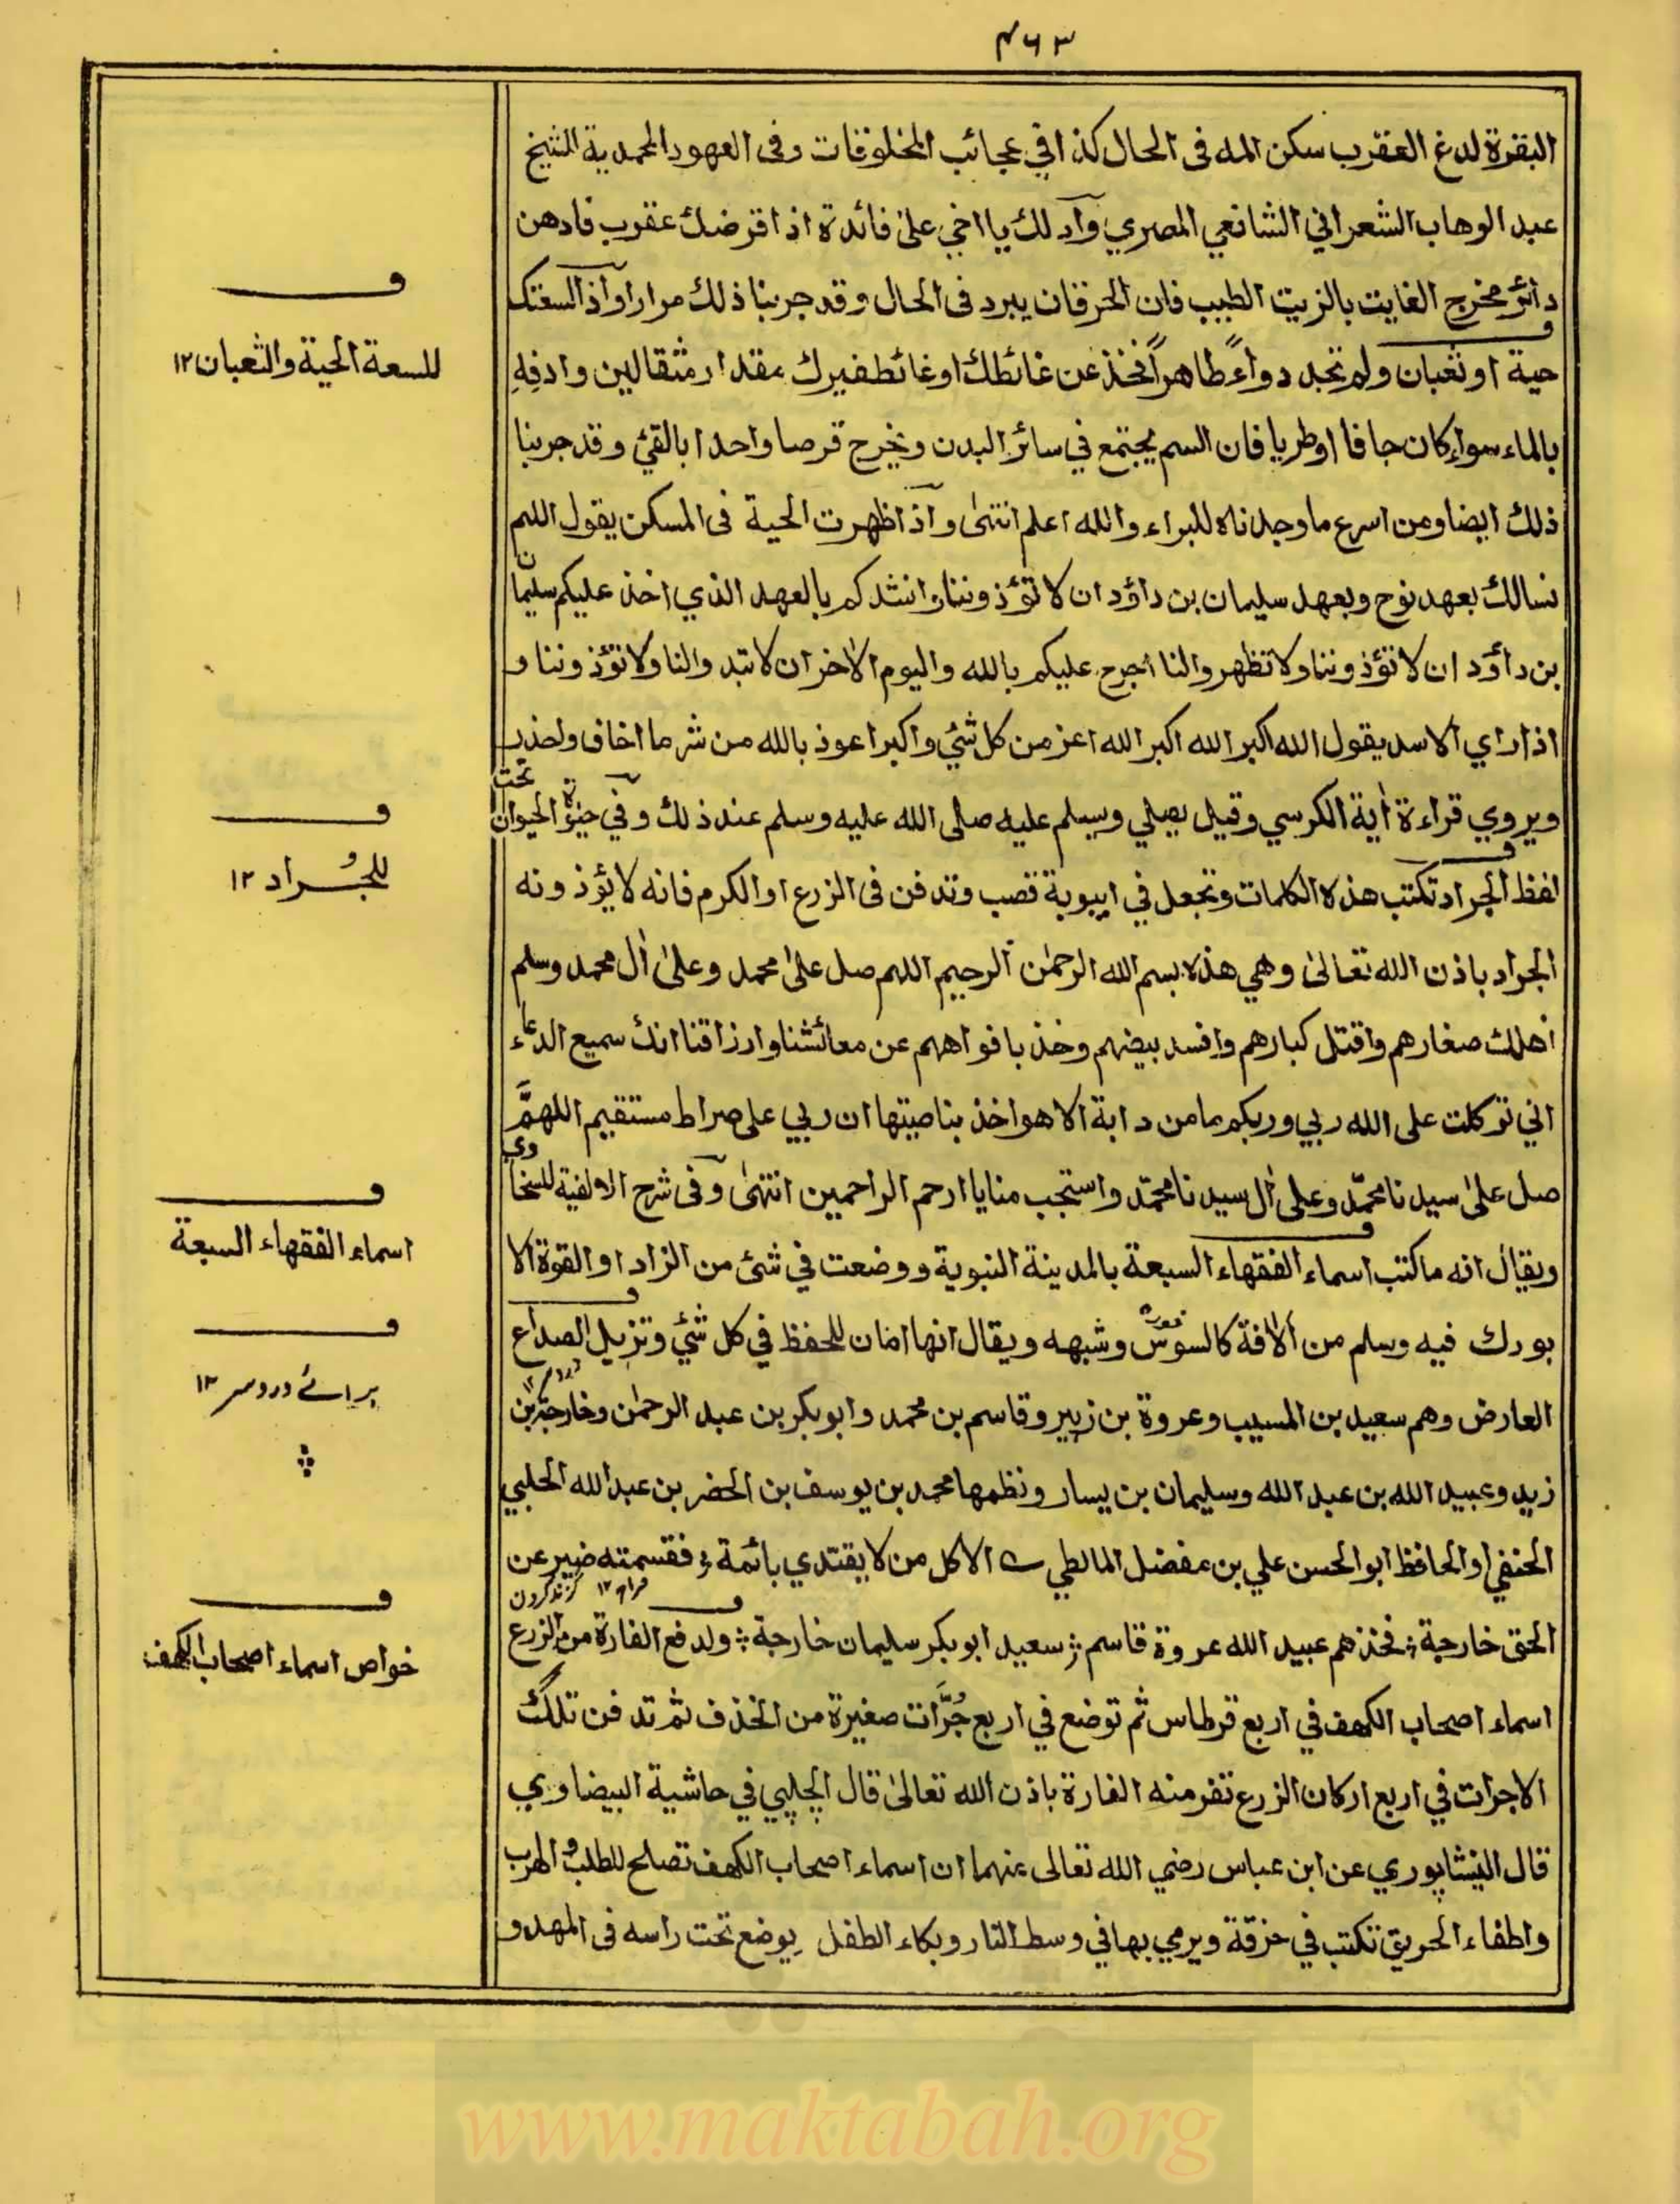 ٤٦٣
البقرة لدغ العقرب سكن المه فى الحال كذا في عجائب المخلوقات وفى العهود المحمدية للشيخ
عبد الوهاب الشعراني الشافعي المصري وآدلك يا اخي على فائدة اذا قرضك عقرب فادهن
دائر مخرج الغايت بالزيت الطيب فان الحرقان يبرد فى الحال وقد جربنا ذلك مرارا وآذا لسعتك
حية او ثعبان ولم تجد دواءً طاهراً فخذ عن غائطك او غائط غيرك مقدار مثقالين وادفه
بالماء سواء كان جافا او طريا فان السم يجتمع في سائر البدن ويخرج قرصا واحدا بالقئ وقد جربنا
ذلك ايضا ومن اسرع ما وجدناه للبراء والله اعلم انتهى وآذا ظهرت الحية فى المسكن يقول اللهم
نسالك بعهد نوح وبعهد سليمان بن داؤد ان لا تؤذوننا وانشدكم بالعهد الذي اخذ عليكم سليمان
بن داؤد ان لا تؤذوننا ولا تظهروا لنا احرج عليكم بالله واليوم الاخر ان لا تبدوا لنا ولا تؤذوننا و
اذا راي الاسد يقول الله اكبر الله اكبر الله اعز من كل شئ واكبر اعوذ بالله من شر ما اخاف واحذر
ويروي قراءة اٰية الكرسي وقيل يصلي ويسلم عليه صلى الله عليه وسلم عند ذلك وفي حيوة الحيوان تحت
لفظ الجراد تكتب هذه الكلمات وتجعل في ايبوبة قصب وتدفن فى الزرع او الكرم فانه لا يؤذونه
الجراد باذن الله تعالىٰ وهي هذه بسم الله الرحمٰن الرحيم اللهم صل علىٰ محمد وعلىٰ اٰل محمد وسلم
اهلك صغارهم واقتل كبارهم وافسد بيضهم وخذ بافواههم عن معائشنا وارزاقنا انك سميع الدعاء
اني توكلت على الله ربي وربكم ما من دابة الا هو اخذ بناصيتها ان ربي على صراط مستقيم اللهمَّ
صل علىٰ سيدنا محمّد وعلى اٰل سيدنا محمّد واستجب منا يا ارحم الراحمين انتهىٰ وفى شرح الالفية للسخاوي
ويقال انه ما كتب اسماء الفقهاء السبعة بالمدينة النبوية ووضعت في شئ من الزاد او القوة الا
بورك فيه وسلم من الافة كالسوس وشبهه ويقال انها امان للحفظ في كل شئ وتزيل الصداع
العارض وهم سعيد بن المسيب وعروة بن زبير وقاسم بن محمد وابوبكر بن عبد الرحمٰن وخارجة بن
زيد وعبيد الله بن عبد الله وسليمان بن يسار ونظمها محمد بن يوسف بن الخضر بن عبد الله الحلبي
الحنفي او الحافظ ابو الحسن علي بن مفضل المالطي الا كل من لا يقتدي بائمة فقسمته ضيزى عن
الحق خارجة فخذهم عبيد الله عروة قاسم سعيد ابوبكر سليمان خارجة ولدفع الفارة من الزرع
اسماء اصحاب الكهف في اربع قرطاس ثم توضع في اربع جُرَّات صغيرة من الخذف ثم تدفن تلك
الاجرات في اربع اركان الزرع تفر منه الفارة باذن الله تعالىٰ قال الچلپي في حاشية البيضاوي
قال النيشاپوري عن ابن عباس رضي الله تعالى عنهما ان اسماء اصحاب الكهف تصلح للطلب والهرب
واطفاء الحريق تكتب في خرقة ويرمي بها في وسط النار وبكاء الطفل يوضع تحت راسه فى المهد و
للسعة الحية والثعبان ١٢
للجُراد ١٢
اسماء الفقهاء السبعة
برائے درد سر ١٢
خواص اسماء اصحاب الكهف
www.maktabah.org